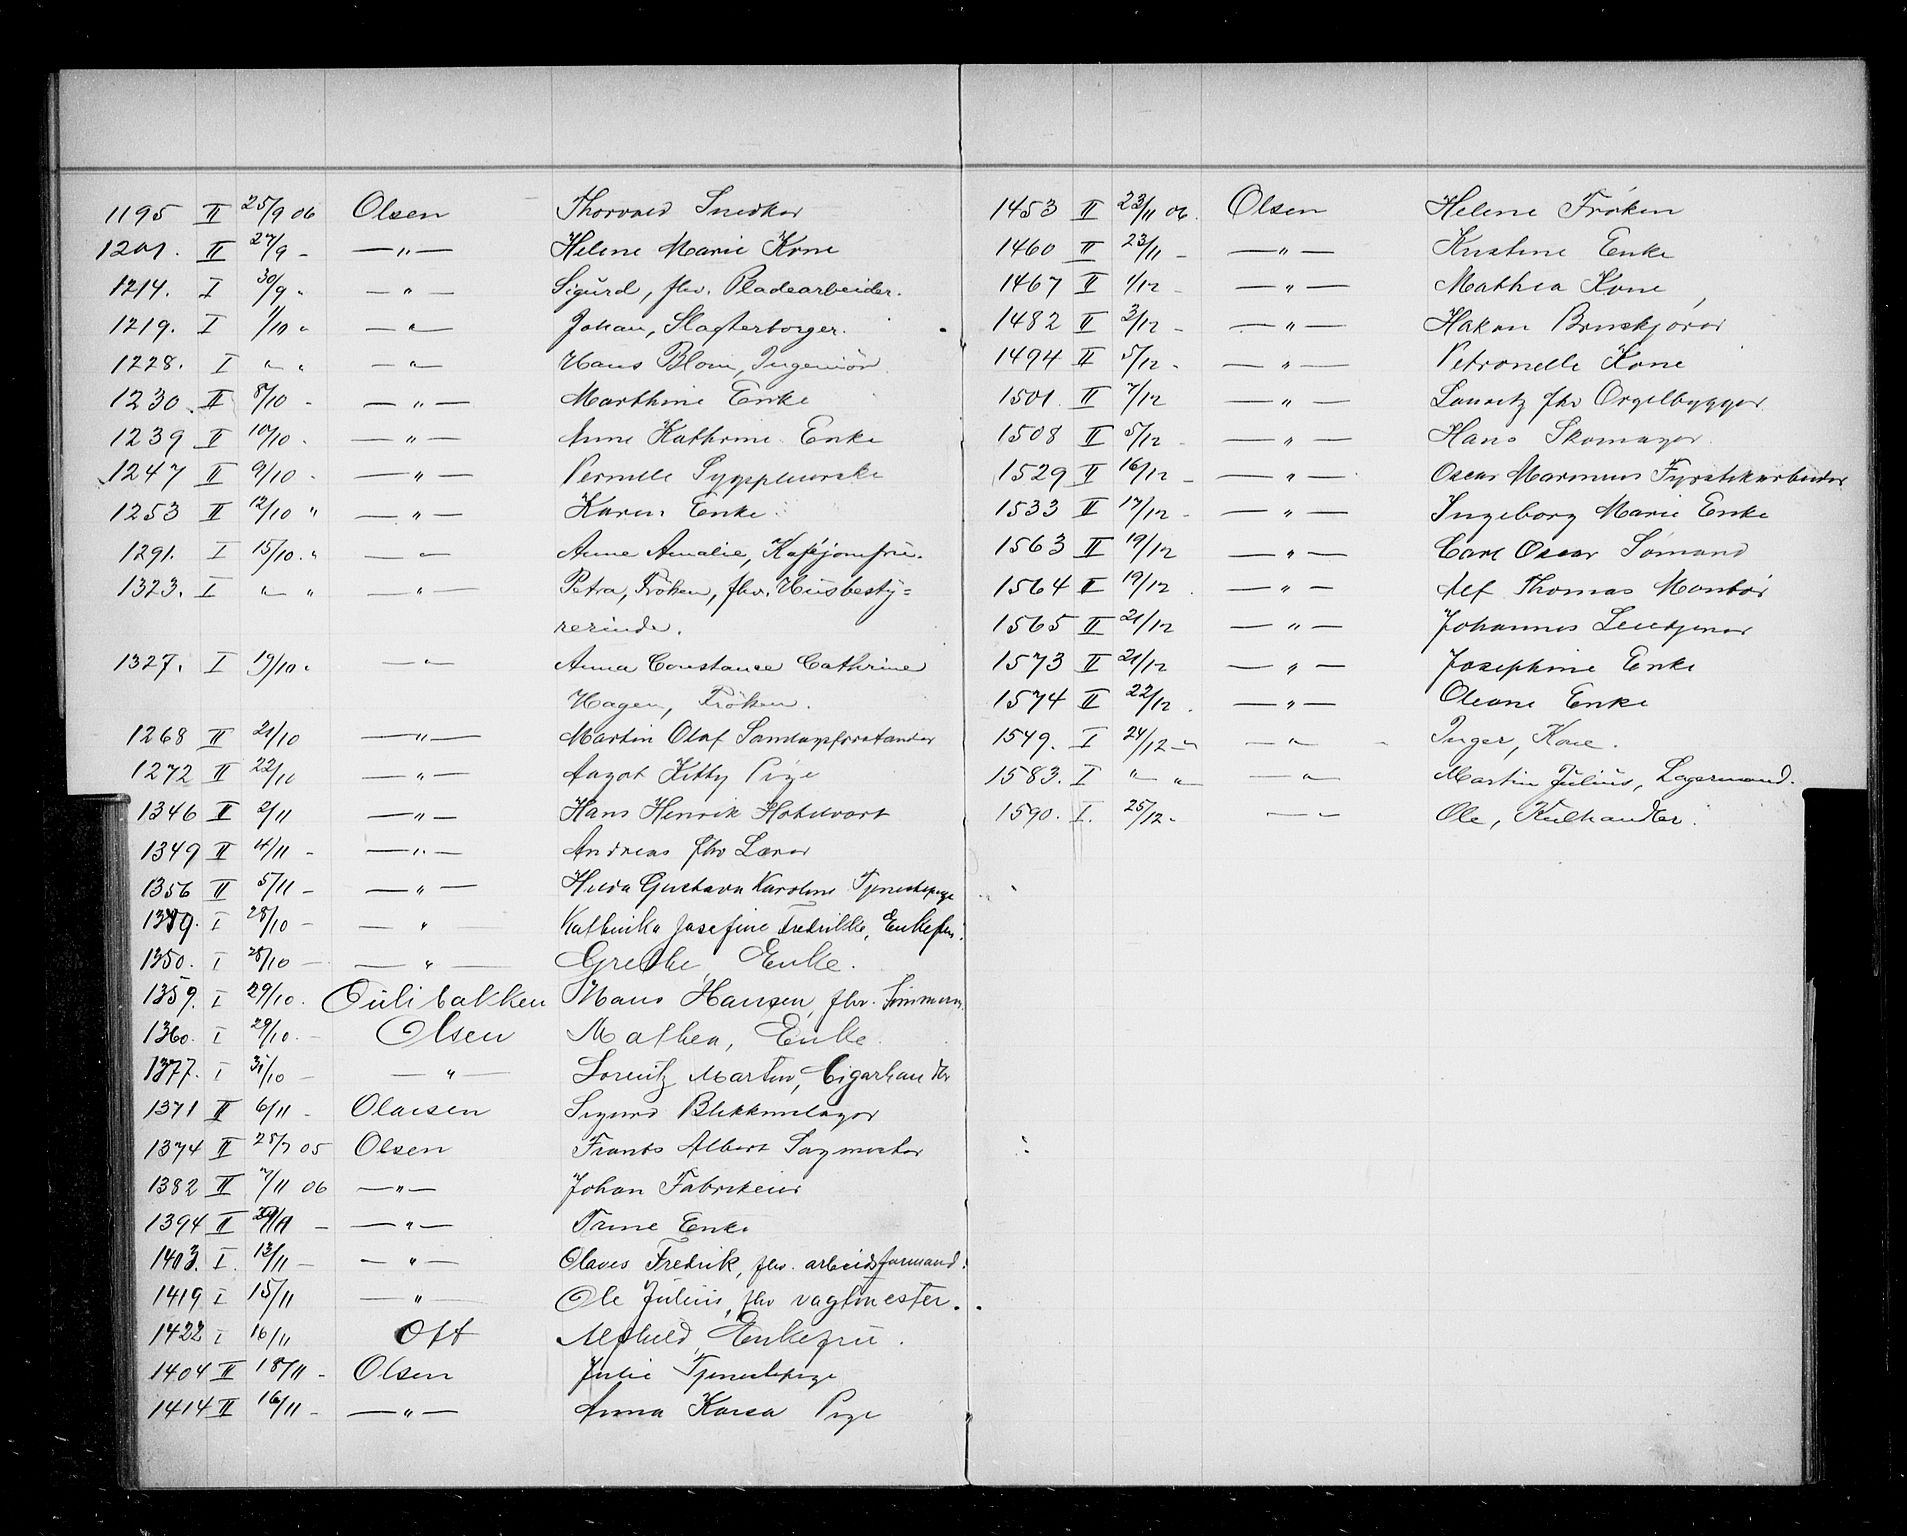 1195 II 25/9 06 Olsen Thorvald Snedker
1201. II 27/9 - —„— Helene Marie Kone
1214. I 30/9 „ —„— Sigurd, fhv. Pladearbeider.
1219. I 1/10 „ —„— Johan, Slagterborger.
1228. I „ „ —„— Hans Blom, Ingeniör
1230. II 8/10 - —„— Marthine Enke
1239 II 10/10 - —„— Anne Kathrine Enke
1247 II 9/10 - —„— Pernille
1253 II 12/10 „ —„— Karen Enke
1291. I 15/10 „ —„— Anne Amalie, Kaféjomfru.
1323. I „ „ —„— Petra, Fröken, fhv. Husbesty=
rerinde.
1327. I 19/10 „ —„— Anna Constance Cathrine
Hagen, Fröken.
1268 II 21/10 —„— Martin Olaf
1272 II 22/10 —„— Aagot Kitty Pige
1346 II 2/11 —„— Hans Henrik Hotelvært
1349 II 4/11 - —„— Andreas fhv Lærer
1356 II 5/11 - —„— Hilda Gustava Karoline Tjenestepige
1349. I 28/10 - —„— Kathinka Josefine Fredrikke, Enkefru.
1350. I 28/10 - —„— Grethe, Enke.
1359. I 29/10. Oulibakken Hans Hansen, fhv. Tømmerm
1360. I 29/10. - Olsen Mathea, Enke.
1377. I 31/10 - —„— Lorentz Martin, Cigarhandler
1371 II 6/11 - Olaisen Sigurd Blikkenslager
1374 II 25/7 05 Olsen Frants Albert Sagmester
1382 II 7/11 06 —„— Johan Fabrikeier
1394 II - —„— Trine Enke
1403. I. 13/11 - —„— Olaves Fredrik, fhv. arbeidsformand.
1419 I 15/11 —„— Ole Julius, fhv vagtmester.
1422 I 16/11 Oft Alfhild, Enkefru.
1404 II 18/11 - Olsen Julie Tjenestepige
1414 II 16/11 - —„— Anna Kaisa Pige
1453 II 23/11 06. Olsen Helene Frøken
1460 II 23/11 - —„— Kristine Enke
1467 II 1/12 - —„— Mathea Kone
1482 II 3/12 - —„— Hakon Bruskjører
1494 II 5/12 - —„— Petronelle Kone
1501 II 7/12 —„— Lauritz fhv Orgelbygger
1508 II 5/12 - —„— Hans Skomager
1529 II 16/12 - —„— Oscar Marinius Fyrstikarbeider
1533 II 17/12 - —„— Ingeborg Marie Enke
1563 II 19/12 —„— Carl Oscar Sømand
1564 II 19/12 . —„— Alf Thomas Montør
1565 II 21/12 —„— Johannes
1573 II 21/12 —„— Josephine Enke
1574 II 22/12 . —„— Oleane Enke
1549. I 24/12 - „ —„— Inger, Kone.
1583. I „ „ —„— Martin Julius, Lagermand.
1590. I. 25/12 - —„— Ole, Kulhandler.